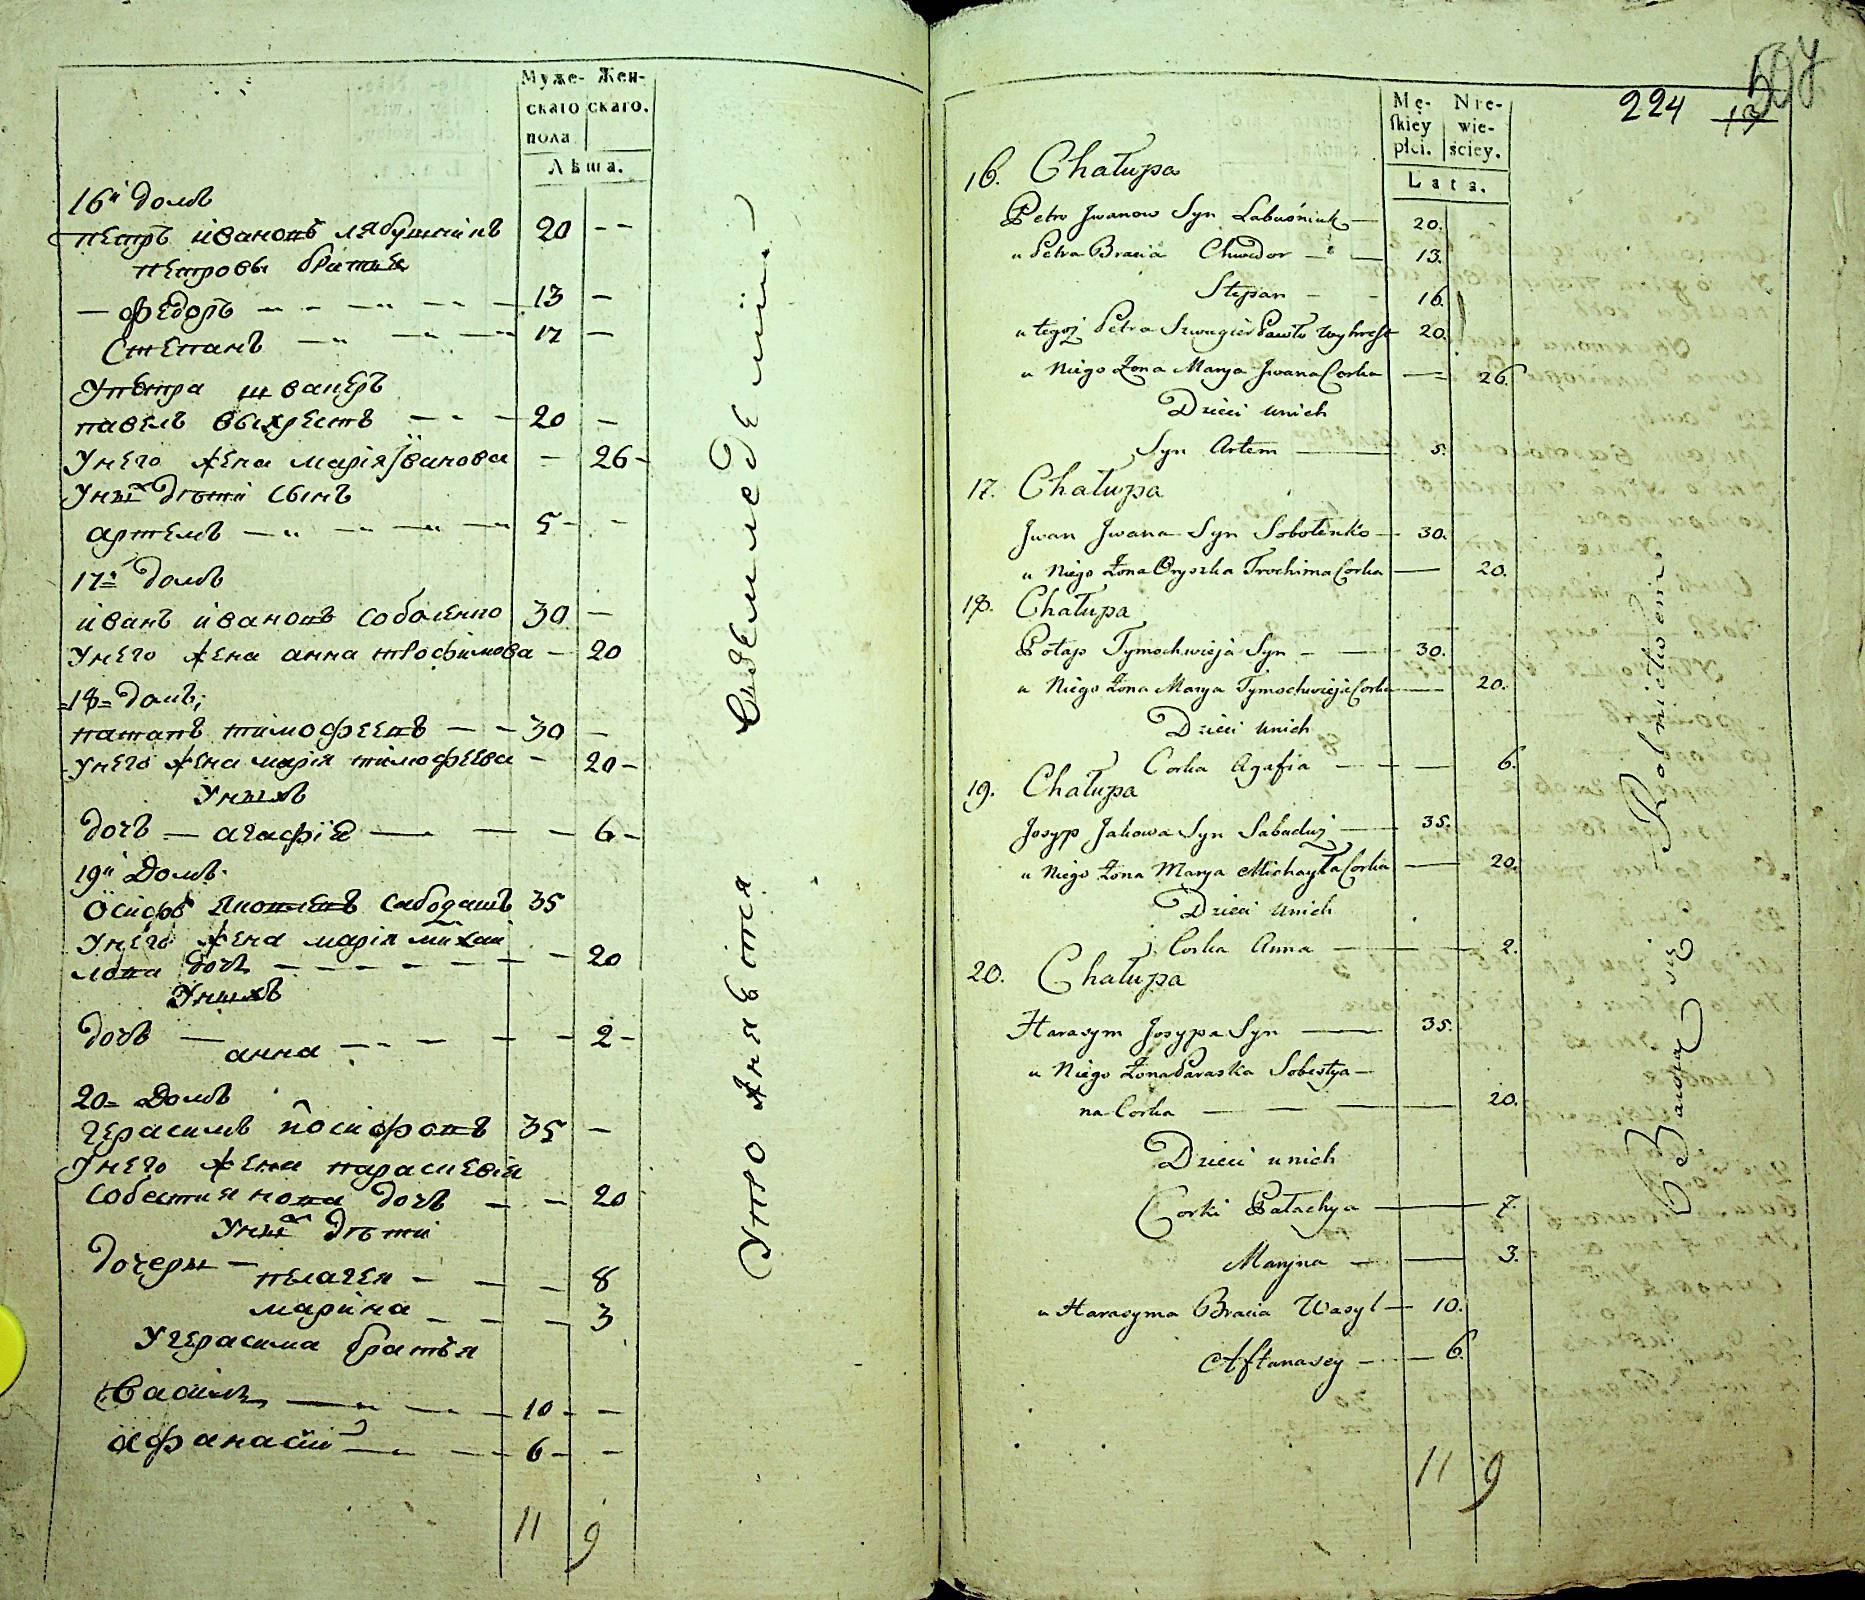 Муже- Жен-
скаго скаго.
пола
Лѣта.
16й домъ
петръ ивановъ лябушникъ 20 - -
петровы братья
— федоръ - - - - 13 —
Степанъ - - - - 17 —
У петра швагеръ
павелъ выхрестъ - - - 20 —
У него жена марія Іванова — 26 -
У ных дѣти сынъ
артемъ — - - - 5 - -
17й домъ
иванъ ивановъ соболенко 30 —
У него жена анна трофимова — 20
18 домъ
патапъ тимофеевъ — - - 30 —
У него жена марія тимофеева — 20 -
У ныхъ
дочь — агафія — — — 6 -
19й Домъ
Осифъ яковлевъ сабодашъ 35
У него жена марія михай
лова дочь - - - - - - 20
У ныхъ
дочь — анна - - - - - 2 -
20 Домъ
герасимъ иосифовъ 35 —
У него жена параскевія
собестиянова дочь - - 20
У ных дѣти
дочеры — пелагея - - - 8
марина - - - 3
У герасима братья
Василь — - - - 10 - -
афанасій — - - - 6 - -
11 9
Упражняются Земледелии
507
224 13
Mę- Nie-
skiey wie-
płci. ściey.
Lata.
16. Chałupa
Petro Jwanow Syn Labuśniuk — 20.
u Petra Bracia Chwedor - - — 13.
Stepan - - 16.
u tegoż Petra Szwagier Pawło Wychrest 20.
u Niego Żona Marya Jwana Corka — = 26.
Dzieci unich
Syn Artem — 5.
17. Chałupa
Jwan Jwana Syn Sobolenko — 30.
u Niego Żona Oryszka Trochima Corka — 20.
18. Chałupa
Potap Tymochwieja Syn - — 30.
u Niego Żona Marya Tymochwieja Corka — 20.
Dzieci unich
Corka Agafia - - — 6.
19. Chałupa
Josyp Jakowa Syn Sabadusz — 35.
u Niego Żona Marya Michayła Corka — 20.
Dzieci unich
Corka Anna — — 2.
20. Chałupa
Harasym Josypa Syn — 35.
u Niego Żona Paraska Sobestya—
na Corka — — — — 20.
Dzieci unich
Corki Pałachya — — 7.
Maryna — — 3.
u Harasyma Bracia Wasyl — 10.
Aftanasey — — 6.
11 9
Bawią się Rolnictwem